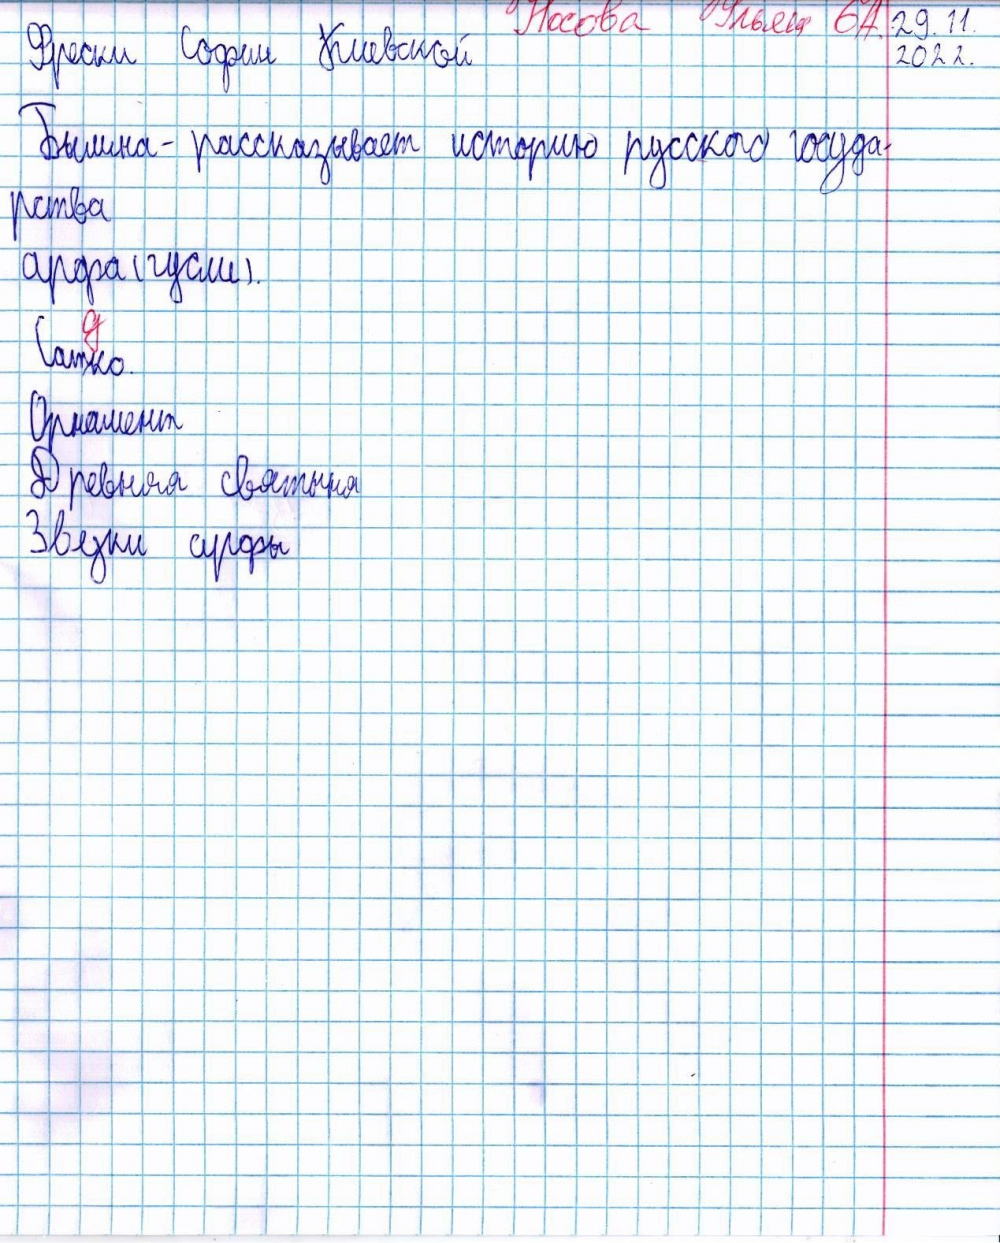 Носова Ульяна 6А. 29.11.
2022.
Фрески Софии Киевской
Былина - рассказывает историю русского госуда-
рства
арфа (гусли).
д
Сатко.
Орнамент
Древняя святыня
Звуки арфы